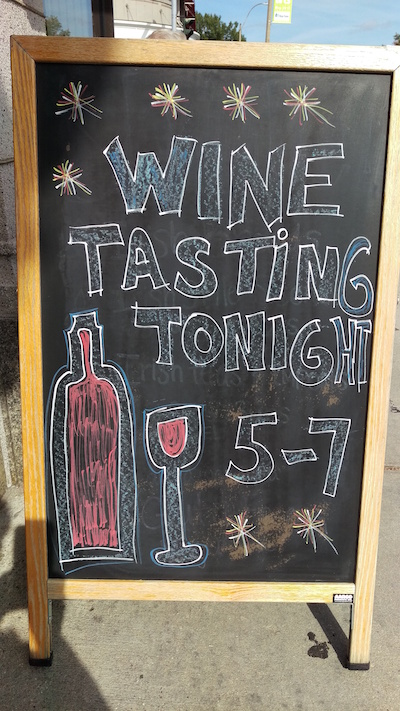 WINE
TASTiNG
TONIGHT
5-7